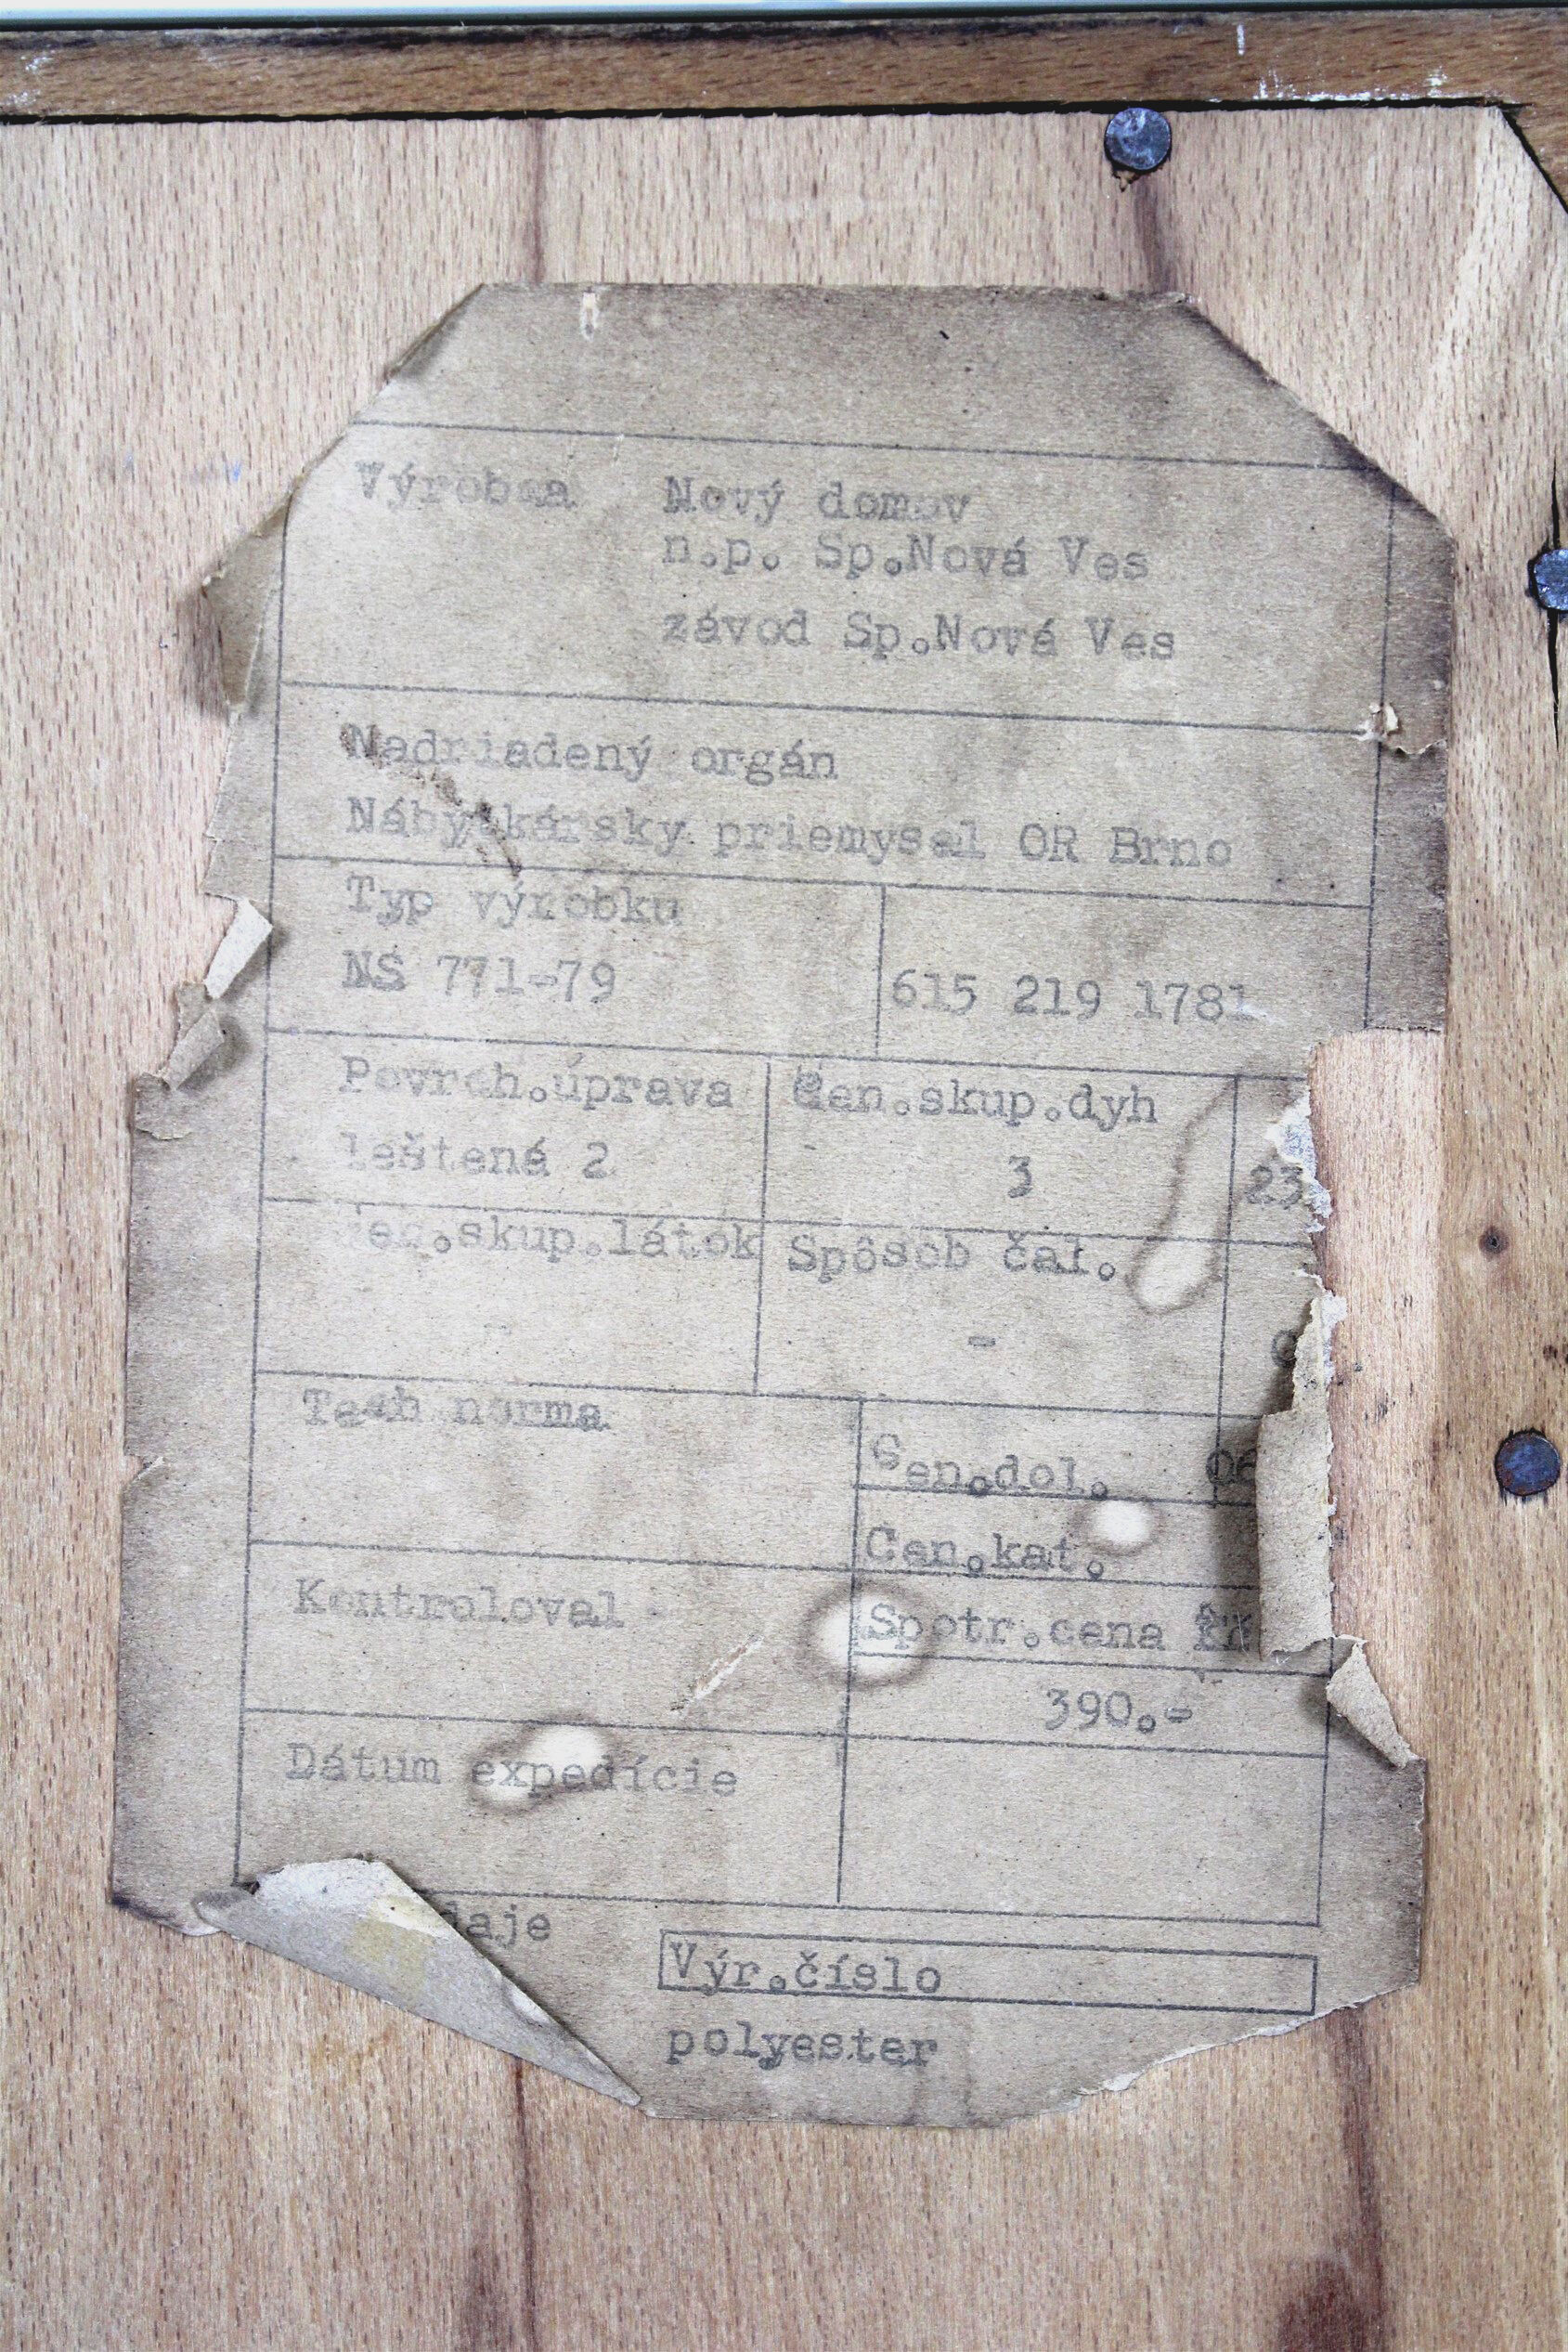 Výrobca Nový domov
n.p. Sp.Nová Ves
závod Sp.Nová Ves
Nadriadený orgán
Nábytkársky priemysel OR Brno
Typ výrobku
NS 771-79 615 219 1781
Povrch.úprava Cen.skup.dyh
leštená 2 3 23
en.skup.látok Spôsob čal.
- -
Tech norma
Cen.dol.
Cen.kat.
Kontroloval Spotr.cena
390.-
Dátum expedície
daje
Výr.číslo
polyester